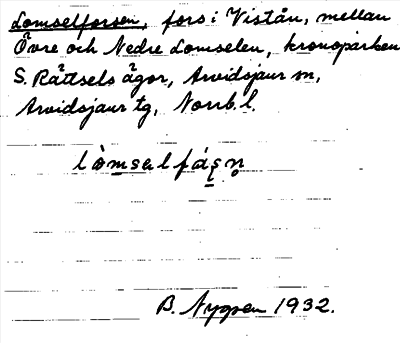 Lomselforsen, fors i Viståu, mellan
Övre och Nedre Lomselen, kronoparken
S. Rättsels ägor, Arvidsjaur sn,
Arvidsjaur tg, Norrb. l.
lòmsəlfásn̥
B. Nygren 1932.